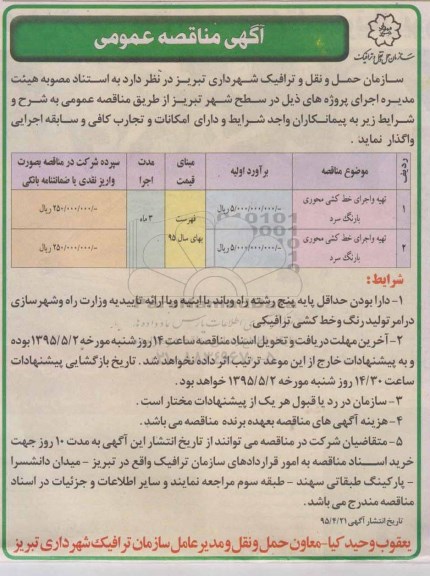 آگهی مناقصه عمومی
سازمان حمل و نقل و ترافیک شهرداری تبریز در نظر دارد به استناد مصوبه هیئت
مدیره اجرای پروژه های ذیل در سطح شهر تبریز از طریق مناقصه عمومی به شرح و
شرایط زیر به پیمانکاران واجد شرایط و دارای امکانات و تجارب کافی و سابقه اجرایی
واگذار نماید .
ردیف موضوع مناقصه برآورد اولیه مبنای قیمت مدت اجرا سپرده شرکت در مناقصه بصورت واریز نقدی یا ضمانتنامه بانکی
۱ تهیه واجرای خط کشی محوری بارنگ سرد ۵/۰۰۰/۰۰۰/۰۰۰/- ریال فهرست بهای سال ۹۵ ۳ ماه ۲۵۰/۰۰۰/۰۰۰/- ریال
۲ تهیه واجرای خط کشی محوری بارنگ سرد ۵/۰۰۰/۰۰۰/۰۰۰/- ریال ۲۵۰/۰۰۰/۰۰۰/- ریال
شرایط :
۱- دارا بودن حداقل پایه پنج رشته راه وباند یا ابنیه و یا ارائه تاییدیه وزارت راه وشهرسازی
درامر تولید رنگ وخط کشی ترافیکی
۲- آخرین مهلت دریافت و تحویل اسناد مناقصه ساعت ۱۴ روز شنبه مورخه ۱۳۹۵/۵/۲ بوده
و به پیشنهادات خارج از این موعد ترتیب اثر داده نخواهد شد. تاریخ بازگشایی پیشنهادات
ساعت ۱۴/۳۰ روز شنبه مورخه ۱۳۹۵/۵/۲ خواهد بود.
۳- سازمان در رد یا قبول هر یک از پیشنهادات مختار است .
۴- هزینه آگهی های مناقصه بعهده برنده مناقصه می باشد .
۵- متقاضیان شرکت در مناقصه می توانند از تاریخ انتشار این آگهی به مدت ۱۰ روز جهت
خرید اسناد مناقصه به امور قراردادهای سازمان ترافیک واقع در تبریز - میدان دانشسرا
- پارکینگ طبقاتی سهند - طبقه سوم مراجعه نمایند و سایر اطلاعات و جزئیات در اسناد
مناقصه مندرج می باشد.
تاریخ انتشار آگهی ۹۵/۴/۲۱
یعقوب وحید کیا-معاون حمل و نقل و مدیر عامل سازمان ترافیک شهرداری تبریز